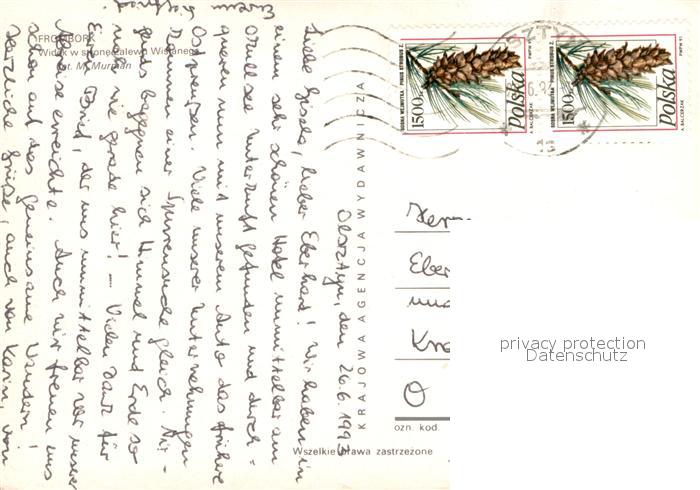 FROMBORK
Widok w stronę Zalewu Wiślanego
Fot. M. Murman
Olsztyn, den 26.6.1993
Liebe Gisela, lieber Eberhard! Wir haben in
einem sehr schönen Hotel unmittelbar am
See Unterkunft gefunden und durch=
queren nun mit unserem Auto das frühere
Ostpreußen. Viele unserer Unternehmungen
kommen einer Spurensuche gleich. Nir-
gends begegnen sich Himmel und Erde so
nah wie gerade hier! – Vielen Dank für
Euren Brief, der uns unmittelbar vor unserer
Abreise erreichte. Auch wir freuen uns
schon auf das gemeinsame Wandern!
Herzliche Grüße, auch von Karin, von
Eurem
KRAJOWA AGENCJA WYDAWNICZA
SOSNA WEJMUTKA - PINUS STROBUS Z.
1500 zł
Polska
A. BALCERZAK
PWPW 91
SOSNA WEJMUTKA - PINUS STROBUS Z.
1500 zł
Polska
A. BALCERZAK
PWPW 91
Eber
und
O
ozn. kod
Wszelkie prawa zastrzeżone
privacy protection
Datenschutz